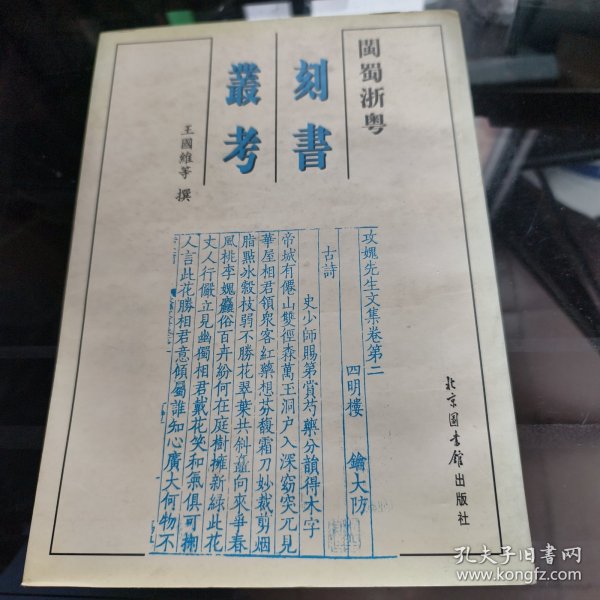 閩蜀浙粤
刻書
叢考
王國維等 撰
攻媿先生文集卷第二
四明樓 鑰大防
古詩
史少師賜第賞芍藥分韻得木字
帝城有僊山雙徑森萬玉洞户入深窈突兀見
華屋相君領衆客紅藥想芬馥霜刀妙裁剪烟
脂點冰縠枝弱不勝花翠葉共斜矗向來爭春
風桃李媿麤俗百卉紛何在庭樹擁新緑此花
丈人行儼立見幽獨相君戴花笑和氣俱可掬
人言此花勝相君意傾蜀誰知心廣大何物不
北京圖書館出版社
孔夫子旧书网
www.kongfz.com